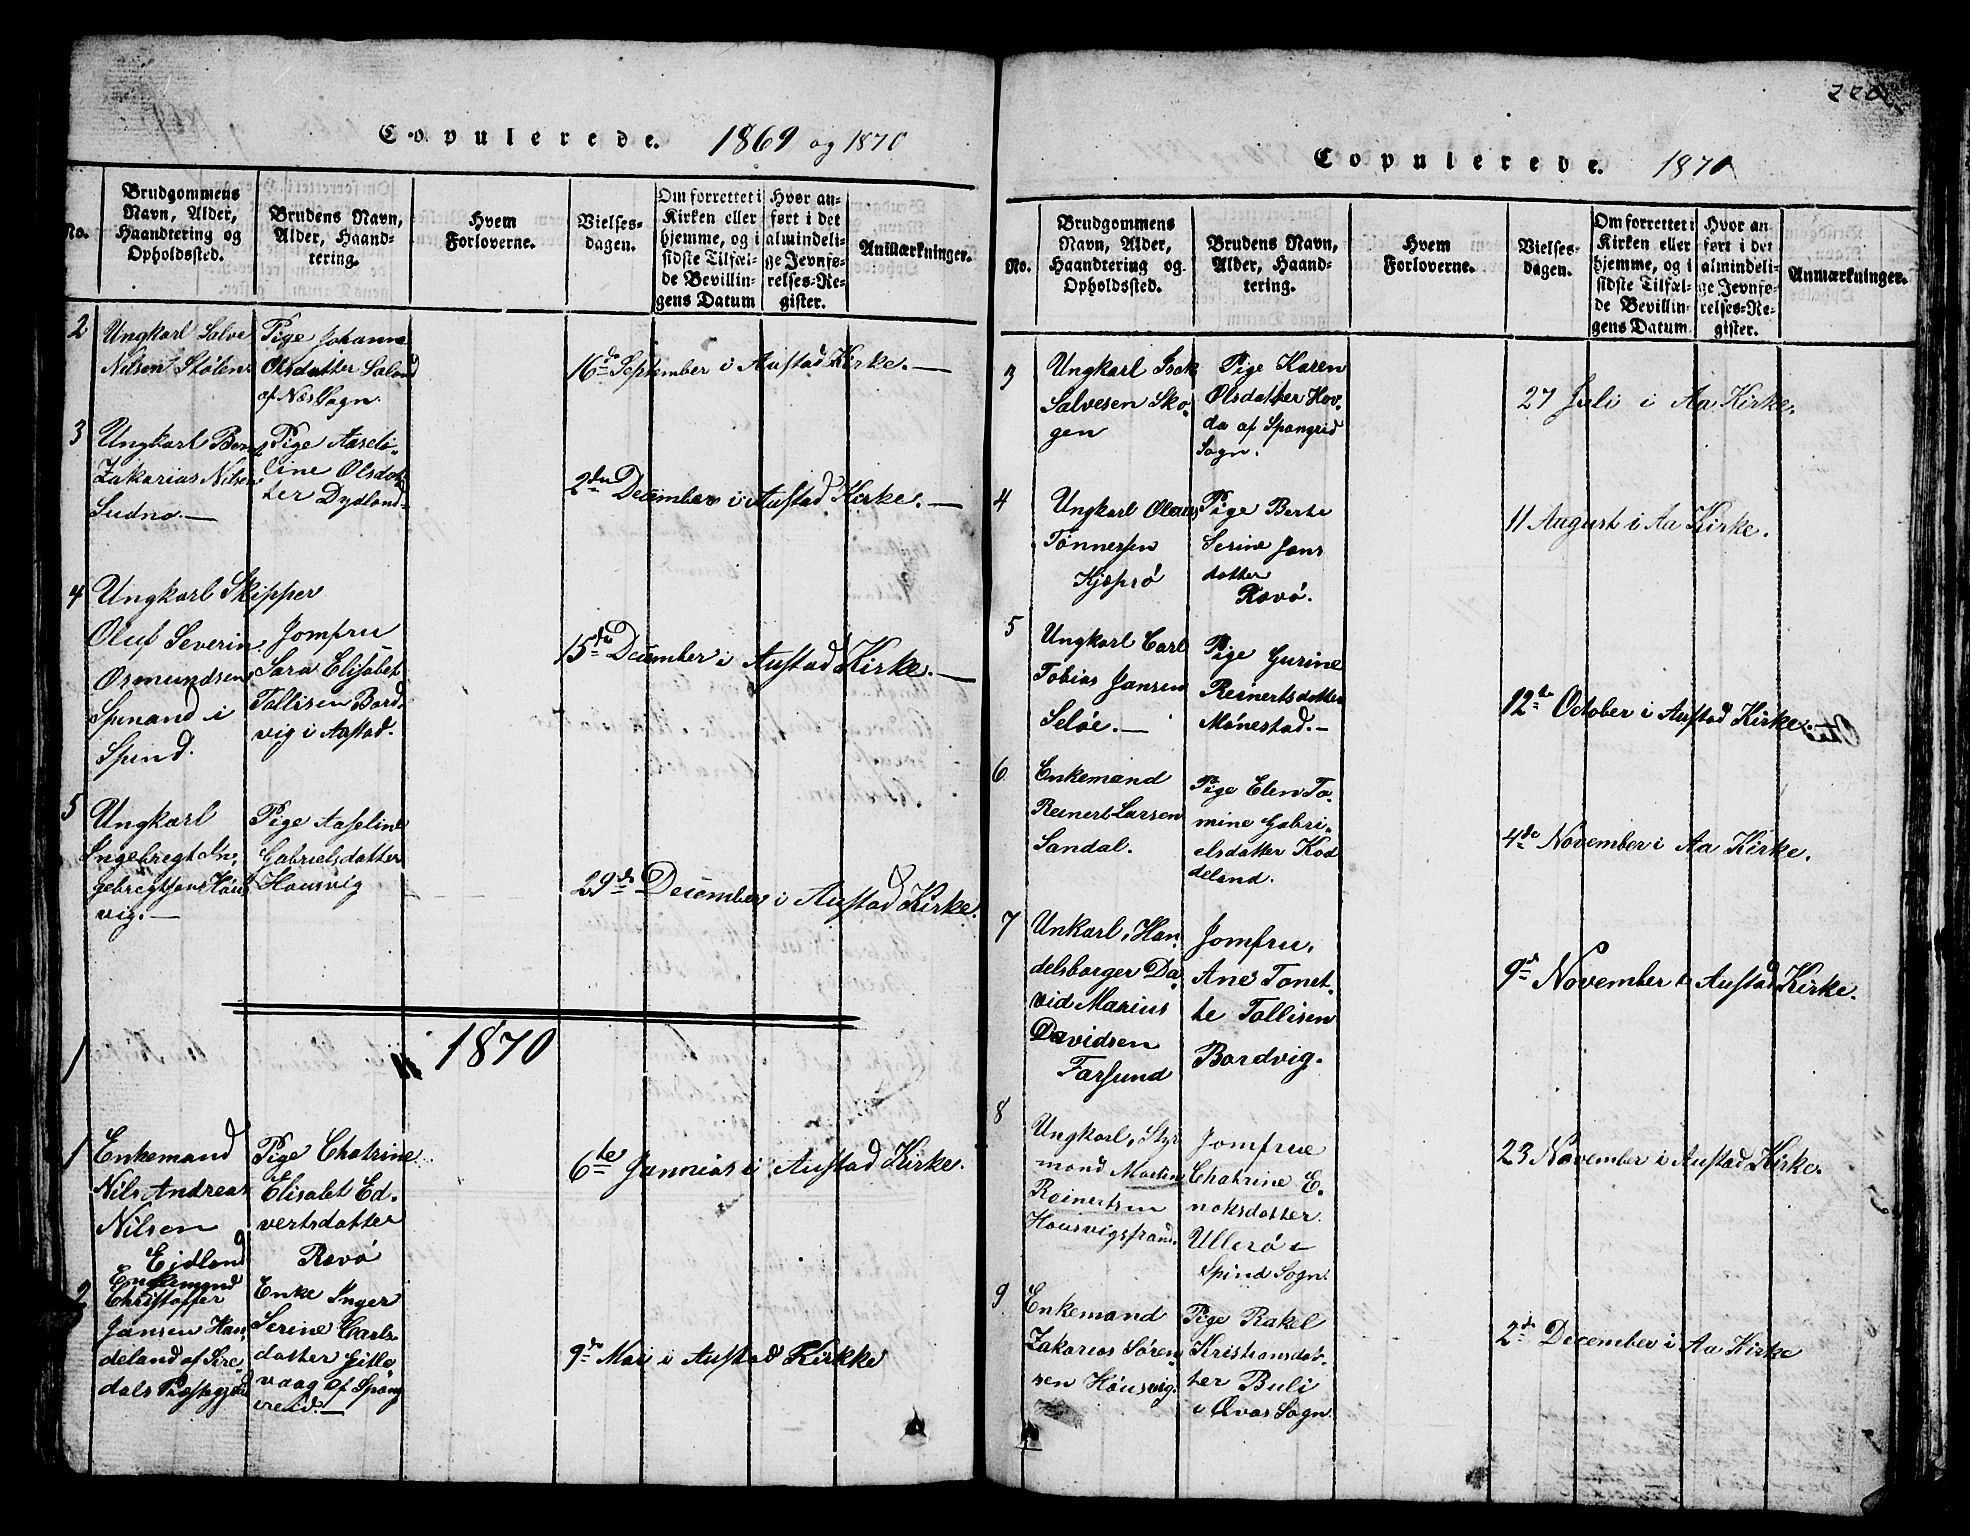 Copulerede. 1869 og 1870
No.
Brudgommens
Navn, Alder,
Haandtering og
Opholdssted.
Brudens Navn,
Alder, Haand-
tering.
Hvem
Forloverne.
Vielses-
dagen.
Om forrettet i
Kirken eller
hjemme, og i
sidste Tilfæl-
de Bevillin-
gens Datum
Hvor an-
ført i det
almindeli-
ge Jevnfø-
relses-Re-
gister.
Anmærkninger.
2
Ungkarl Salve
Nilsen Stølen
Pige Johanne
Olsdatter Saland
af Næs Sogn.
16de September i Austad Kirke. —
3
Ungkarl Bernt
Zakarias Nilsen
Sudnø. —
Pige Aaseli-
line Olsdat-
ter Dydland.
2den December i Austad Kirke. —
4
Ungkarl Skipper
Oluf Severin
Osmundsen
Spinand i
Spind.
Jomfru
Sara Elisabet
Tallisen Bord-
vig i Austad.
15de December i Austad Kirke. —
5
Ungkarl
Ingebregt In-
gebregtsen Hous-
vig. —
Pige Aaseline
Gabrielsdatter
Housvig
29de December i Austad Kirke.
1
1870
1
Enkemand
Nils Andreas
Nilsen
Eidland
Pige Chatrine
Elisabet Ed-
vertsdatter
Rævø
6te Januar i Austad Kirke.
2
Enkemand
Christoffer
Jansen Han-
deland af Sire-
dals Præstegjæld
Enke Inger
Serine Carls-
datter Gitle-
vaag af Spang-
ereid. —
9de Mai i Austad Kirkke
Copulerede. 1870
No.
Brudgommens
Navn, Alder,
Haandtering og
Opholdssted.
Brudens Navn,
Alder, Haand-
tering.
Hvem
Forloverne.
Vielses-
dagen.
Om forrettet i
Kirken eller
hjemme, og i
sidste Tilfæl-
de Bevillin-
gens Datum.
Hvor an-
ført i det
almindeli-
ge Jevnfø-
relses-Re-
gister.
Anmærkninger.
3
Ungkarl Isak
Salvesen Sko-
gen
Pige Karen
Olsdatter Hov-
da af Spangreid
Sogn.
27 Juli i Aa Kirke.
4
Ungkarl Olaus
Tønnessen
Kjøprø
Pige Berte
Serine Jans
datter
Rævø.
11 August i Aa Kirke.
5
Ungkarl Carl
Tobias Jansen
Seløe. —
Pige Gurine
Reinertsdatter
Mønestad. —
12te October i Austad Kirke.
6
Enkemand
Reinert Larsen
Sandal.
Pige Elen To-
mine Gabri-
elsdatter Kod
deland.
4de November i Aa Kirke.
7
Unkarl, Han-
delsborger Da-
vid Marius
Davidsen
Farsund
Jomfru,
Ane Tonet-
te Tallisen
Bordvig.
9de November i Austad Kirke.
8
Ungkarl, Styr
mand Martin
Reinertsen
Housvigstrand.
Jomfrue
Chatrine E-
noksdatter
Ullerø i
Spind Sogn.
23 November i Austad Kirke.
9
Enkemand
Zakarias Søren-
sen Housvig.
Pige Rakel
Kristiansdat-
ter Buli
i Qvas Sogn.
2de December i Aa Kirke